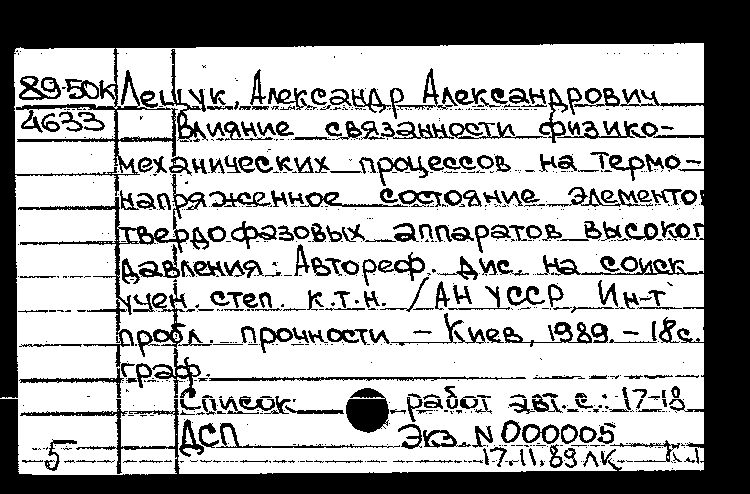 89-50К Лещук, Александр Александрович
4633 Влияние связанности физико-
механических процессов на термо-
напряженное состояние элементов
твердофазовых аппаратов высоког
давления: Автореф. дис. на соиск.
учен. степ. к.т.н. / АН УССР, Ин-т
пробл. прочности. – Киев, 1989. – 18с.
граф.
Список работ авт. с.: 17-18
ДСП Экз. N 000005
5 17.11.89 лк